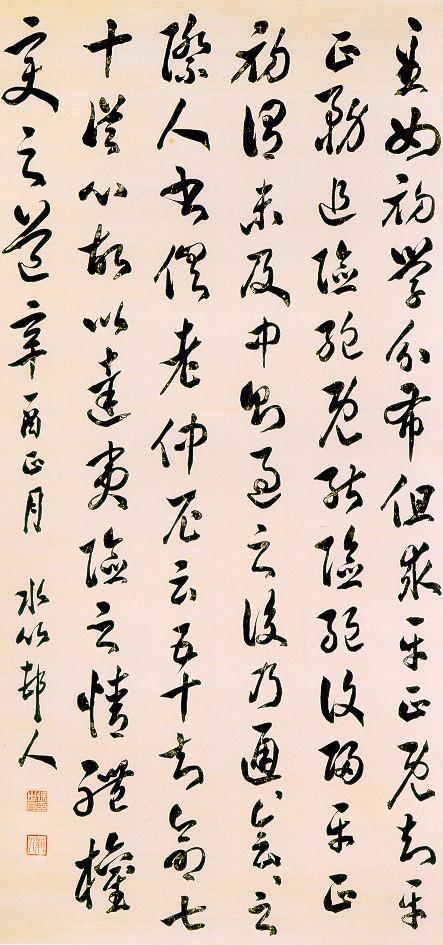 至如初學分布但求平正既知平
正務追險絕既能險絕復歸平正
初謂未及中則過之後乃通々會々之
際人書俱老仲尼云五十知命七
十從心故以達夷險之情體權
變之道辛酉正月 水竹邨人